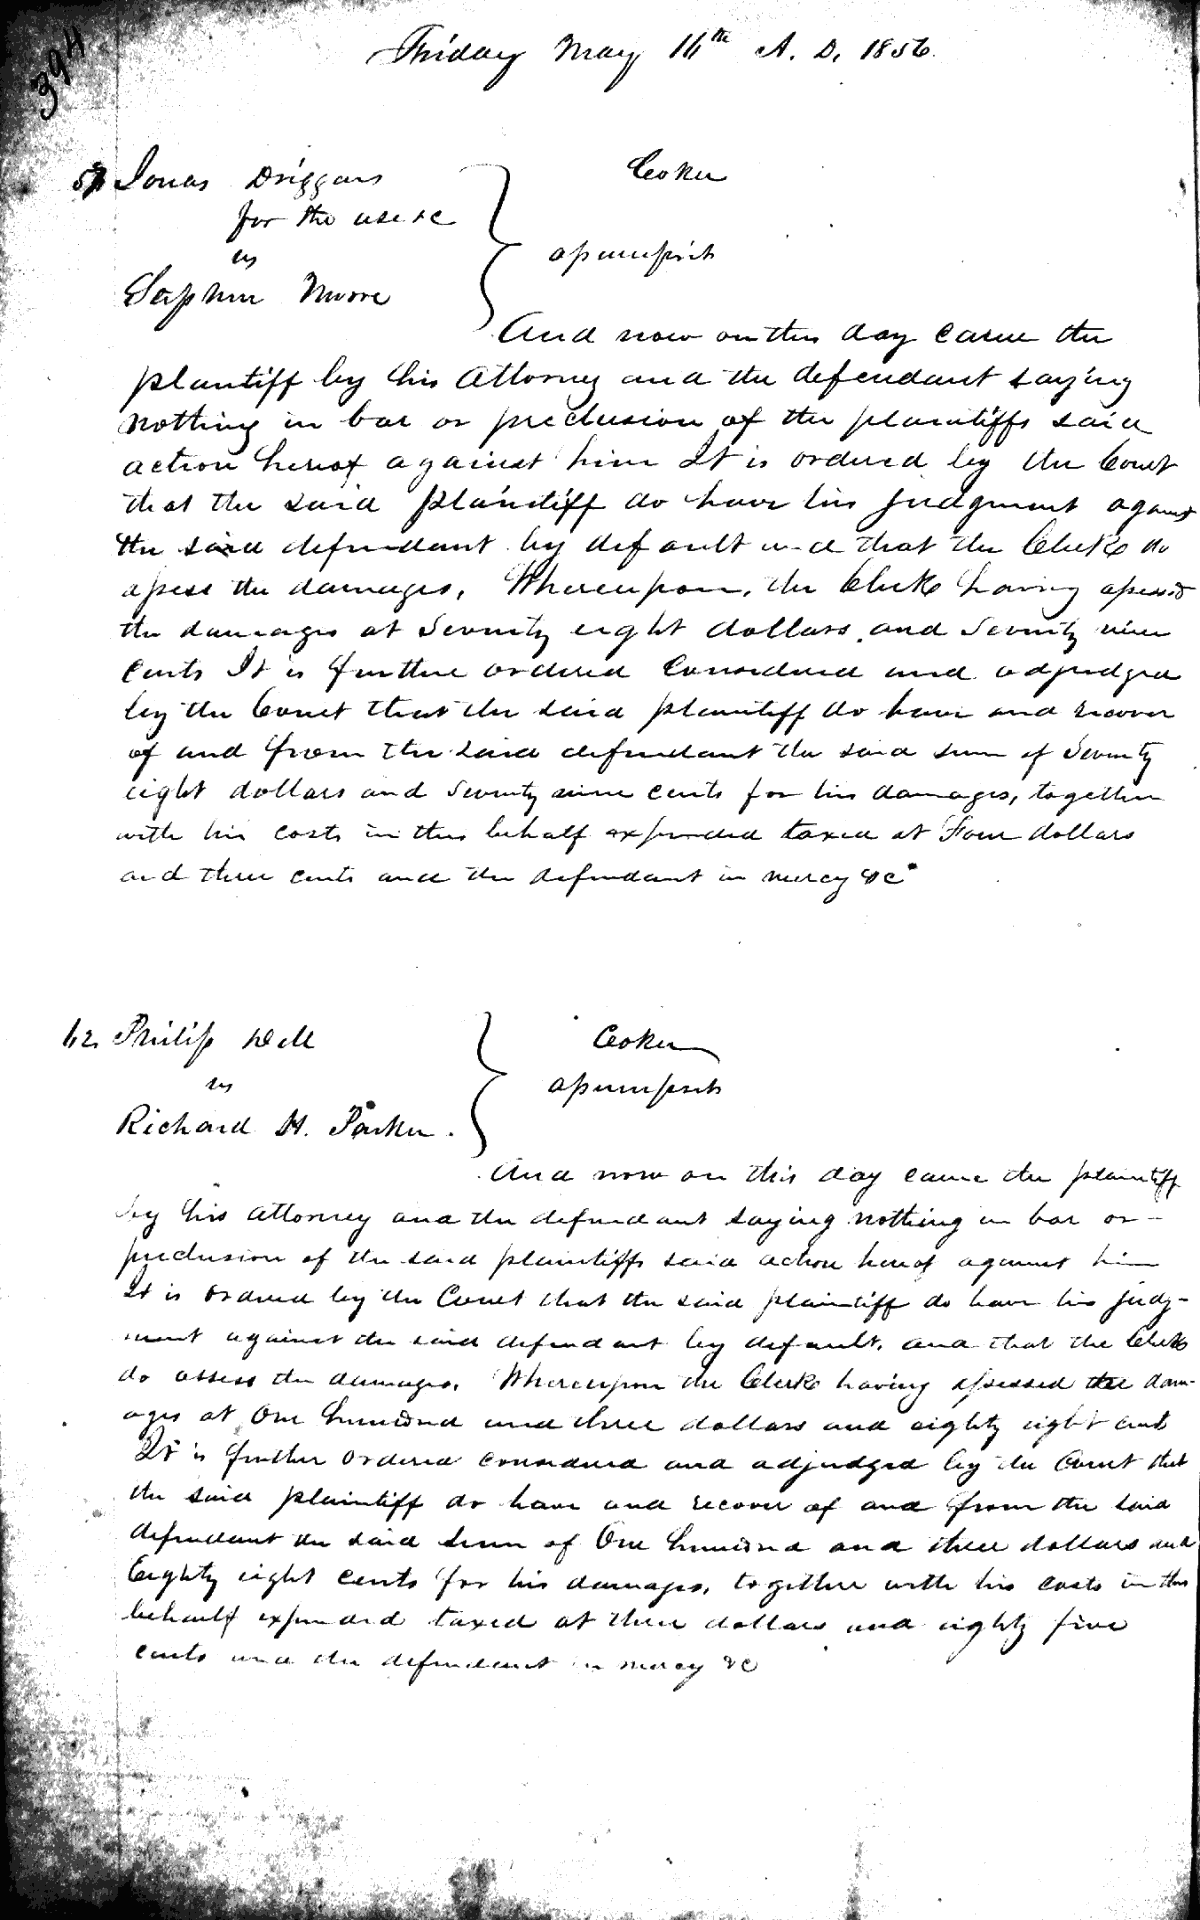 394
Friday May 16th A. D. 1856.
Jonas Driggars
for the use &c
vs
Stephen Moore
Coker
assumpsit
And now on this day came the
plantiff by his Attorney and the defendant saying
nothing in bar or preclusion of the plaintiffs said
action hereof against him It is ordered by the Court
that the said plaintiff do have his judgment against
the said defendant by default and that the Clerk do
assess the damages, Whereupon, the Clerk having assessed
the damages at Seventy eight dollars and Seventy nine
cents It is further ordered Considered and adjudged
by the Court that the said plaintiff do have and recover
of and from the said defendant the said sum of Seventy
eight dollars and Seventy nine cents for his damages, together
with his costs in this behalf expended taxed at Four dollars
and three cents and the defendant in mercy &c
62. Philip Dell
vs
Richard H. Parker.
Coker
assumpsit
And now on this day came the plaintiff
by his Attorney and the defendant saying nothing in bar or
preclusion of the said plaintiffs said action hereof against him
It is ordered by the Court that the said plaintiff do have his judg-
ment against the said defendant by default, and that the Clerk
do assess the damages. Whereupon the Clerk having assessed the dam-
ages at One hundred and three dollars and eighty eight cents
It is further ordered considered and adjudged by the Court that
the said plaintiff do have and recover of and from the said
defendant the said sum of One hundred and three dollars and
Eighty eight cents for his damages, together with his costs in this
behalf expended taxed at three dollars and eighty five
cents and the defendant in mercy &c